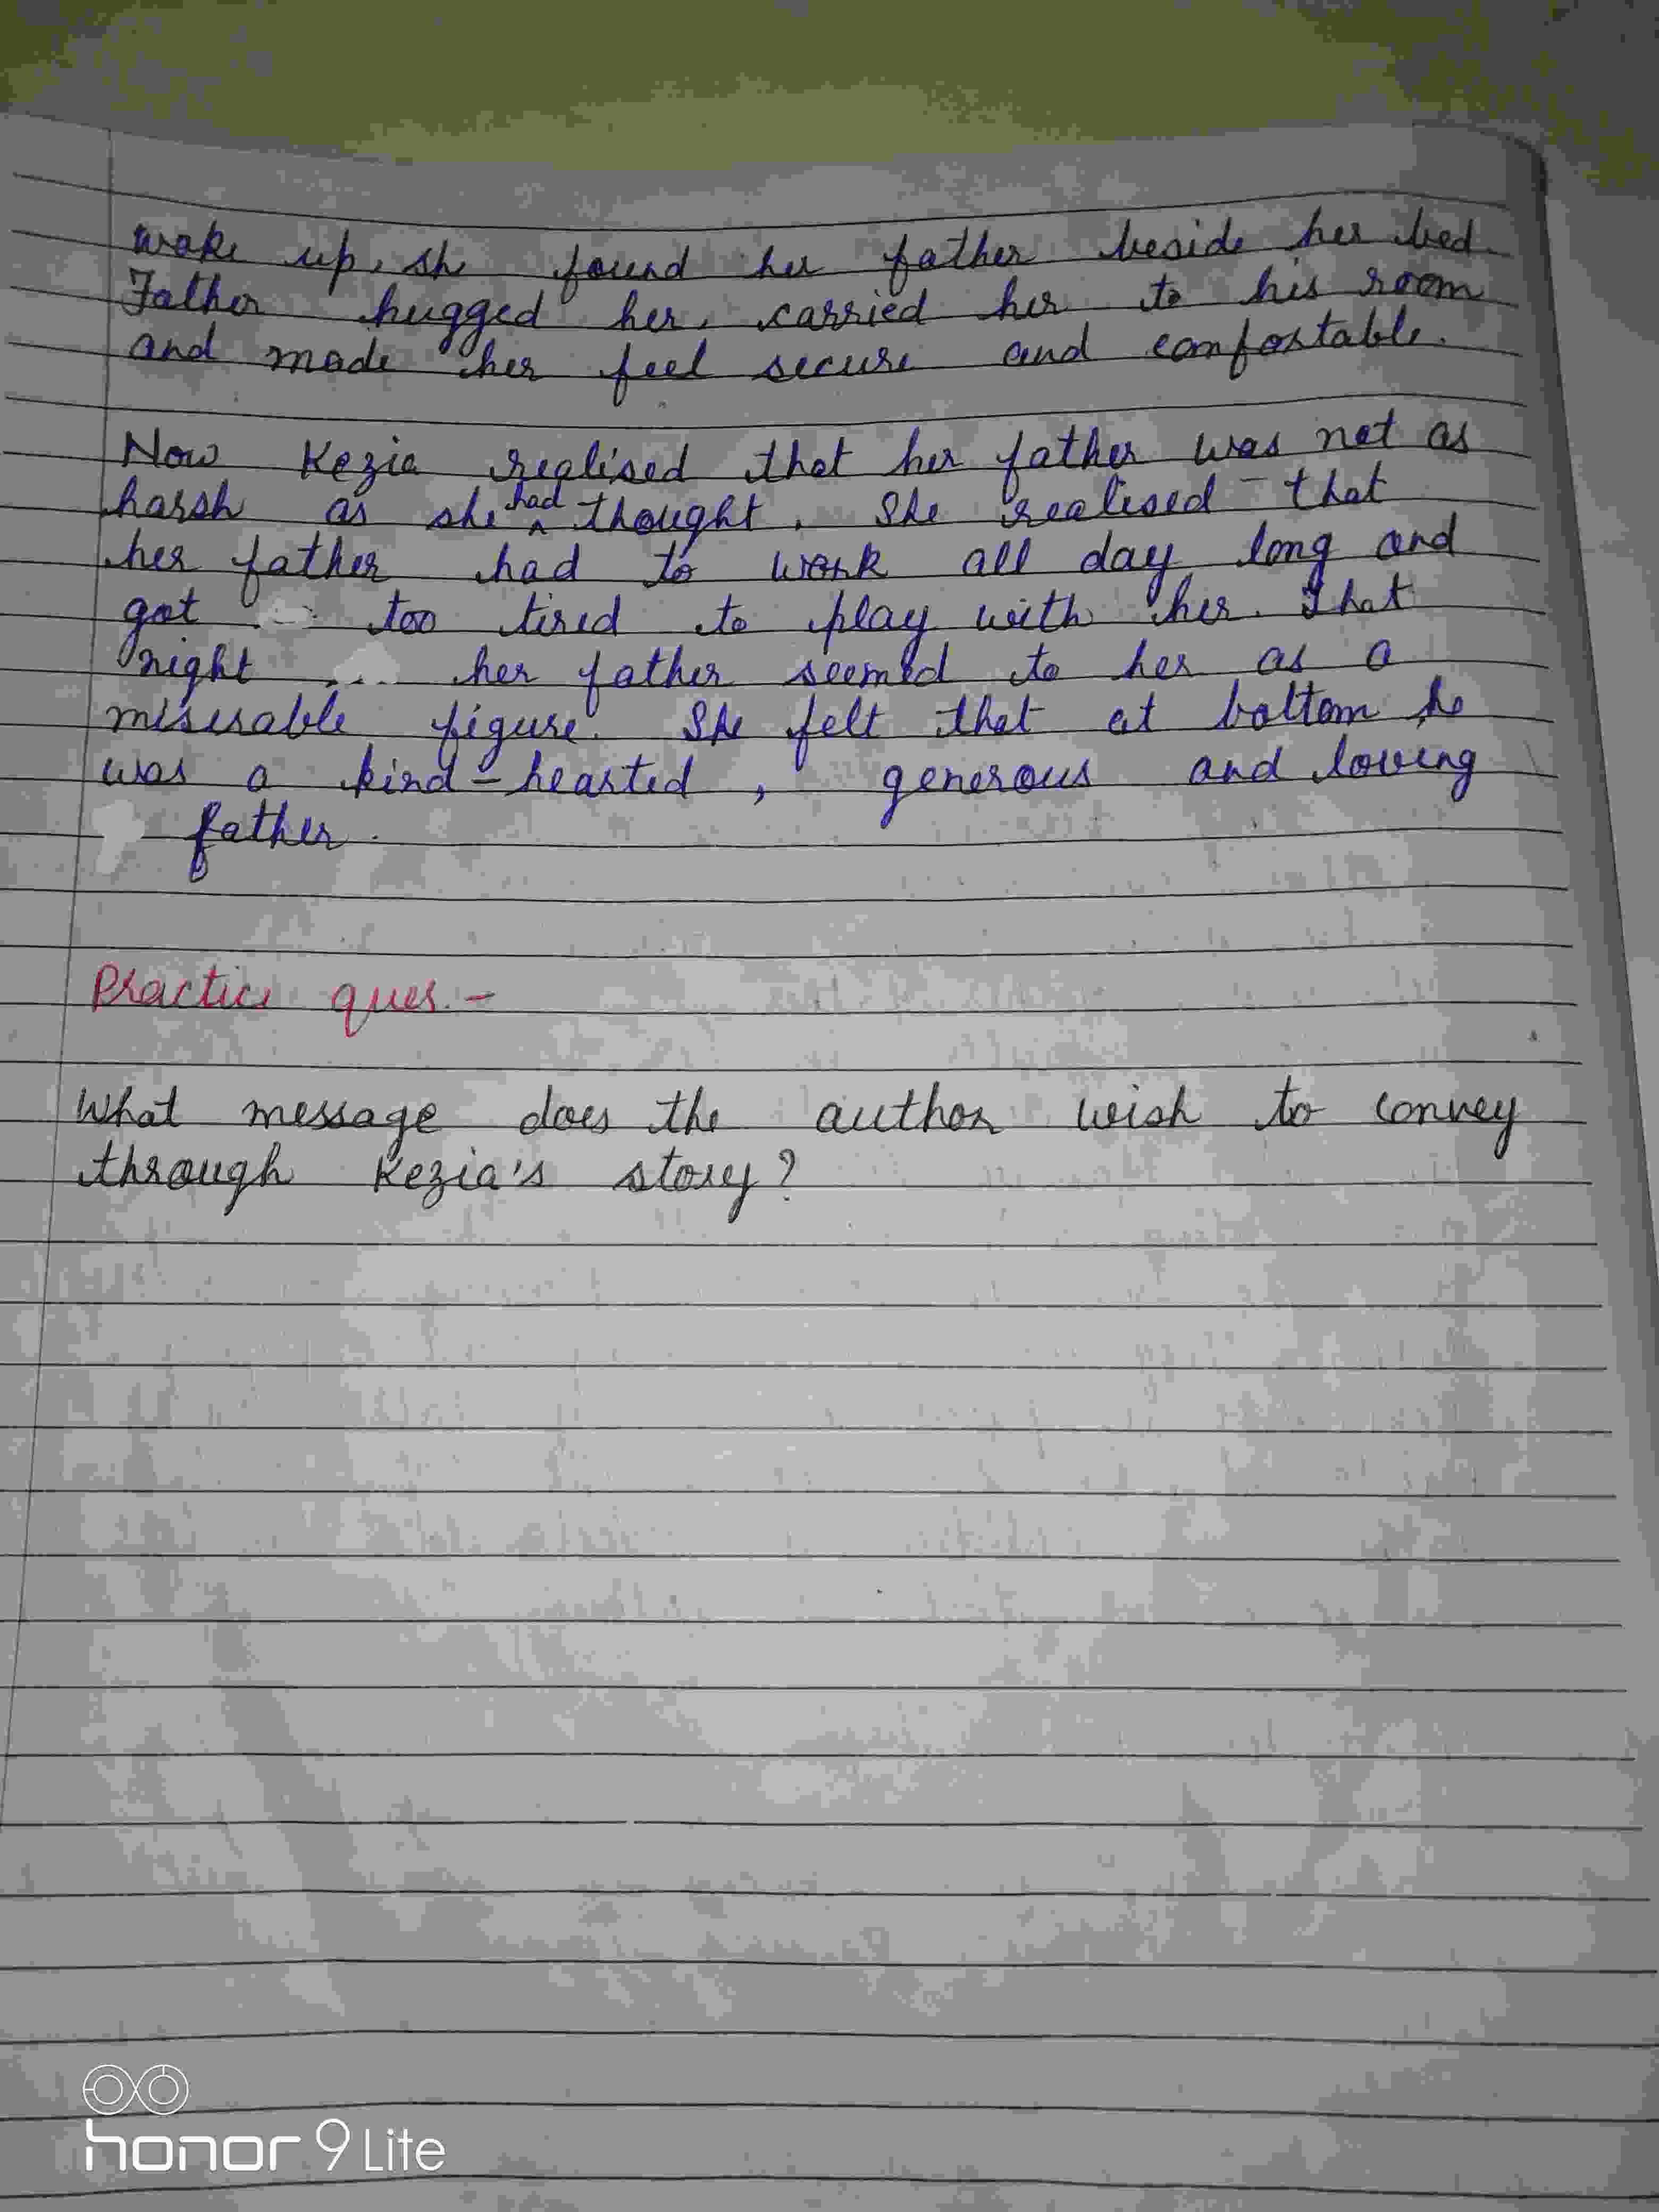 woke up, she found her father beside her bed.
Father hugged her, carried her to his room
and made her feel secure and comfortable.
Now Kezia realised that her father was not as
harsh as she had thought. She realised that
her father had to work all day long and
got too tired to play with her. That
night her father seemed to her as a
miserable figure. She felt that at bottom he
was a kind-hearted, generous and loving
father.
Practice ques.-
What message does the author wish to convey
through Kezia's story?
honor 9 Lite